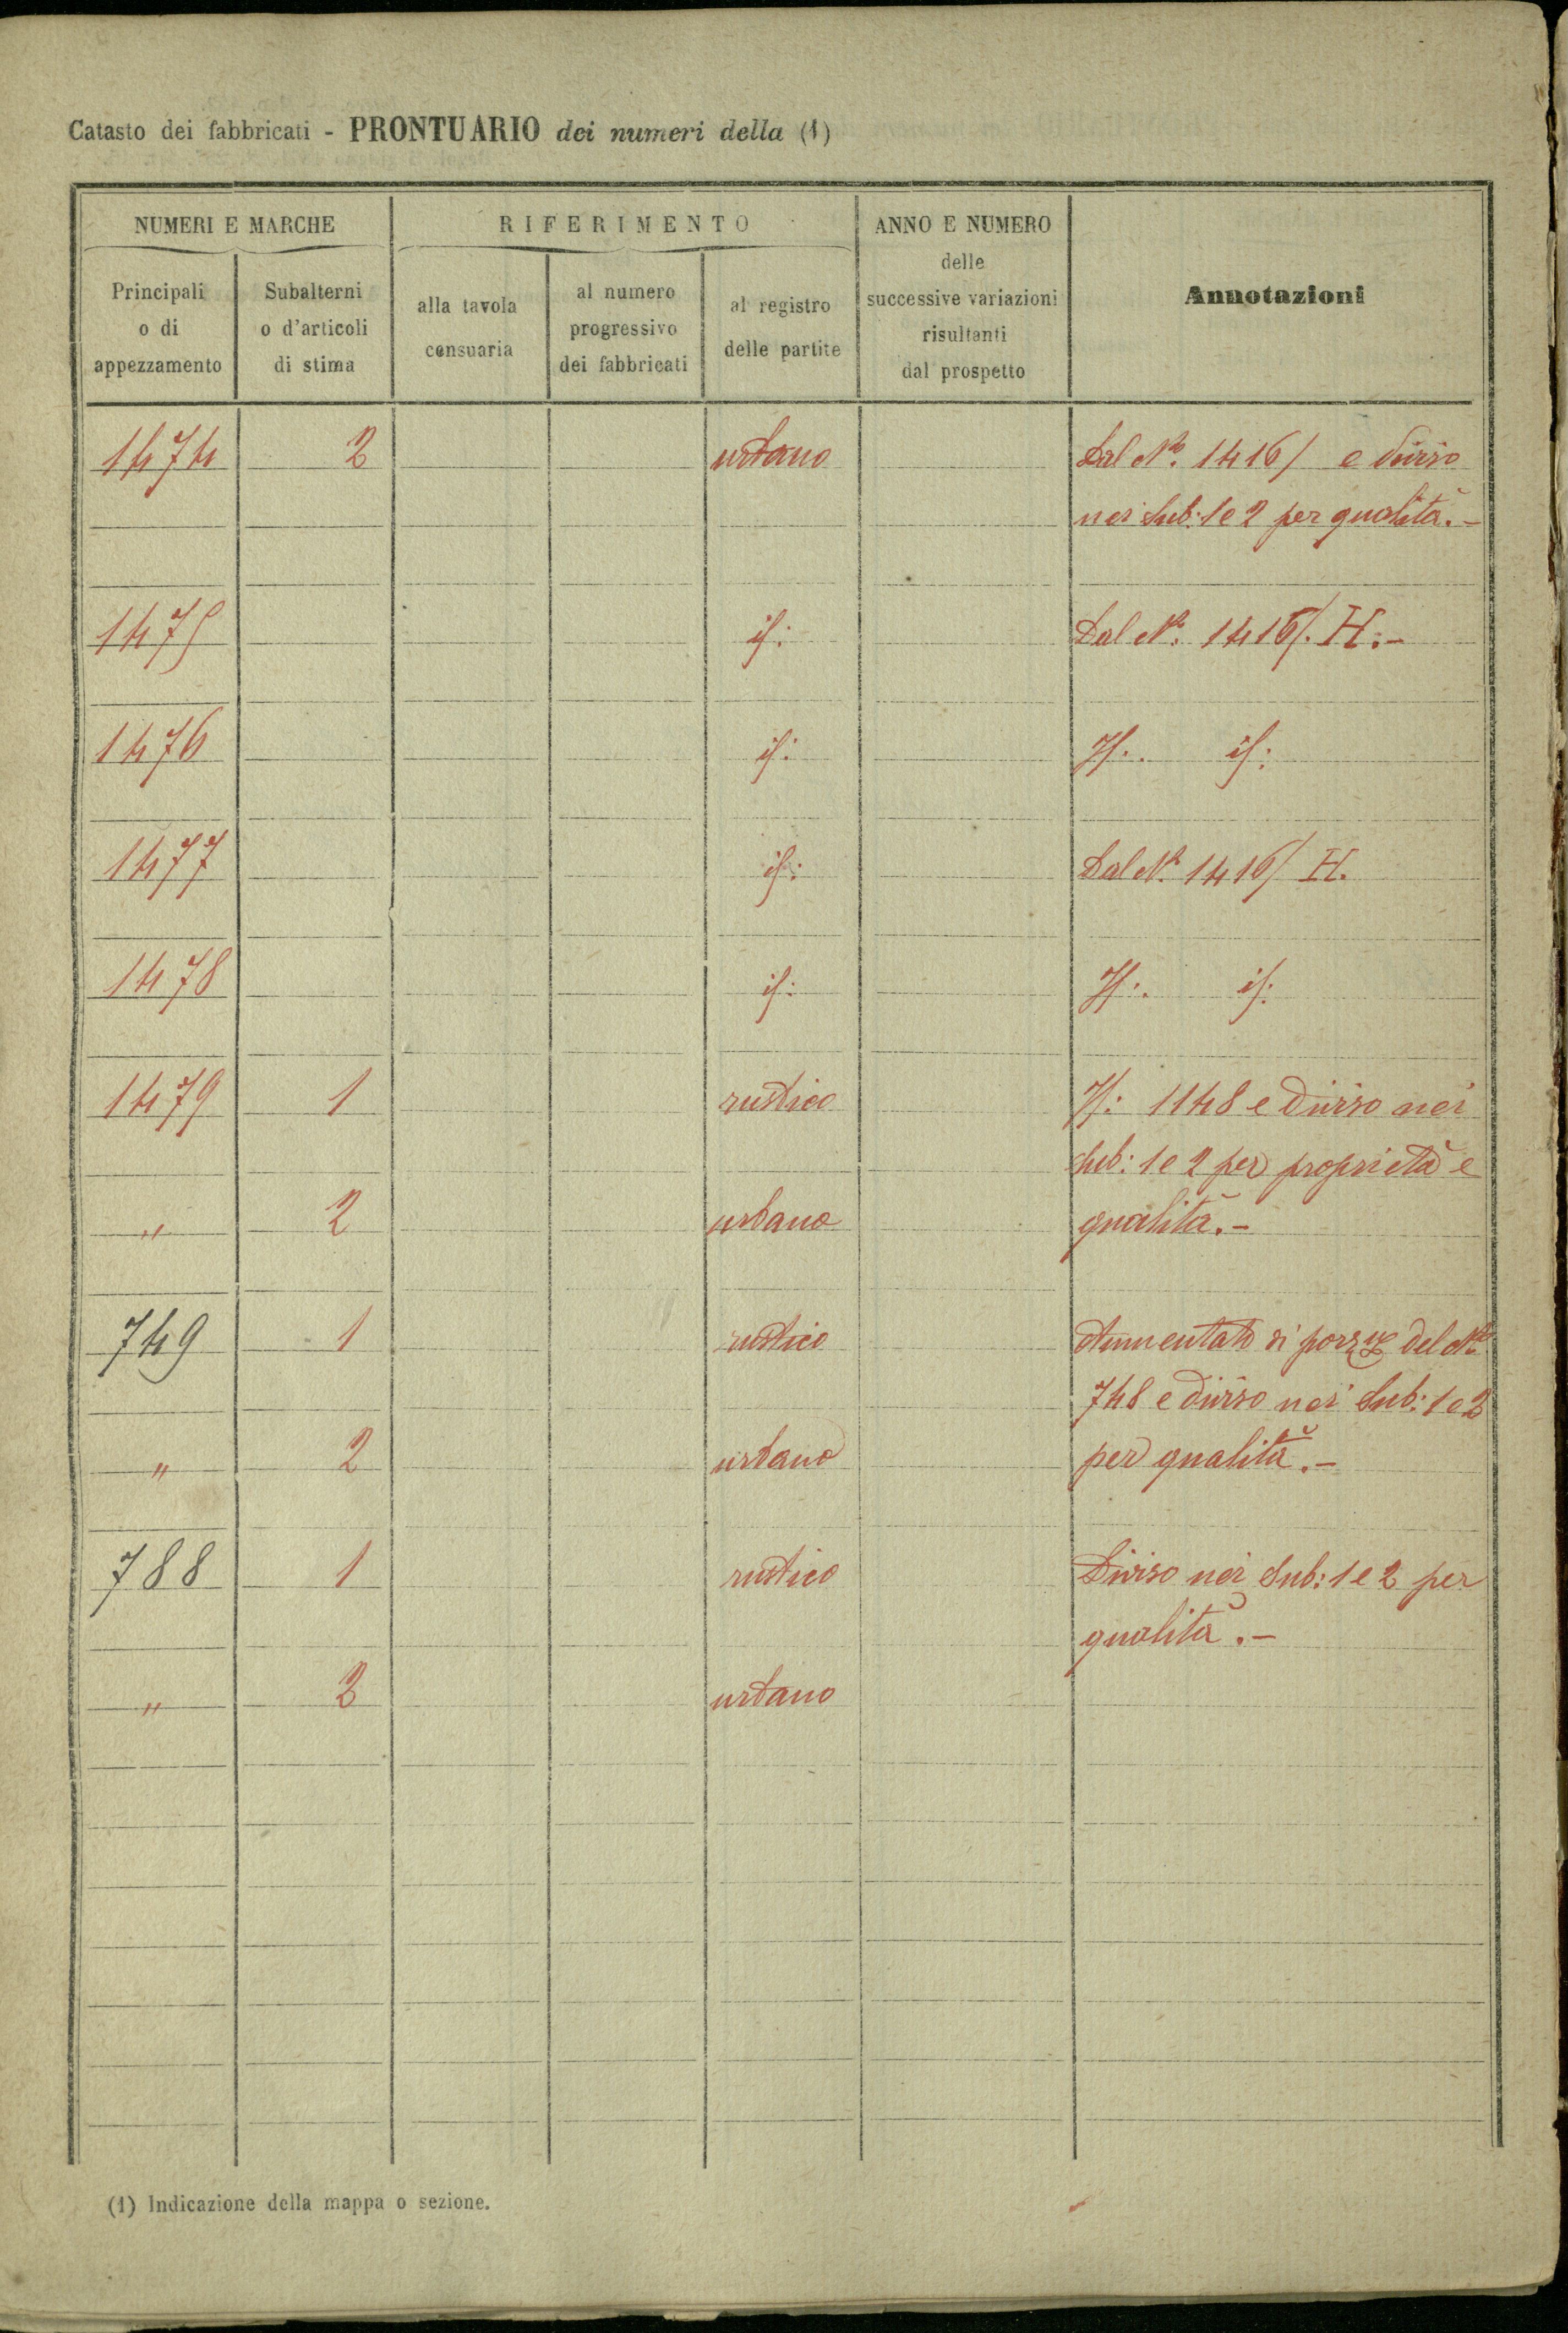 Catasto dei fabbricati - PRONTUARIO dei numeri della (1)
NUMERI E MARCHE RIFERIMENTO ANNO E NUMERO delle successive variazioni risultanti dal prospetto Annotazioni
Principali o di appezzamento Subalterni o d'articoli di stima alla tavola censuaria al numero progressivo dei fabbricati al registro delle partite
1474 2 urbano Dal No. 1416/ e diviso
nei Sub: 1 e 2 per qualità.-
1475 id: Dal No. 1416/. H.-
1476 id: Id: id:
1477 id: Dal No. 1416/ H.
1478 id: Id: id:
1479 1 rustico Id: 1148 e diviso nei
Sub: 1 e 2 per proprietà e
" 2 urbano qualità.-
749 1 rustico Aumentato di porz del No
748 e diviso nei Sub: 1 e 2
" 2 urbano per qualità.-
788 1 rustico Diviso nei Sub: 1 e 2 per
qualità.-
" 2 urbano
(1) Indicazione della mappa o sezione.